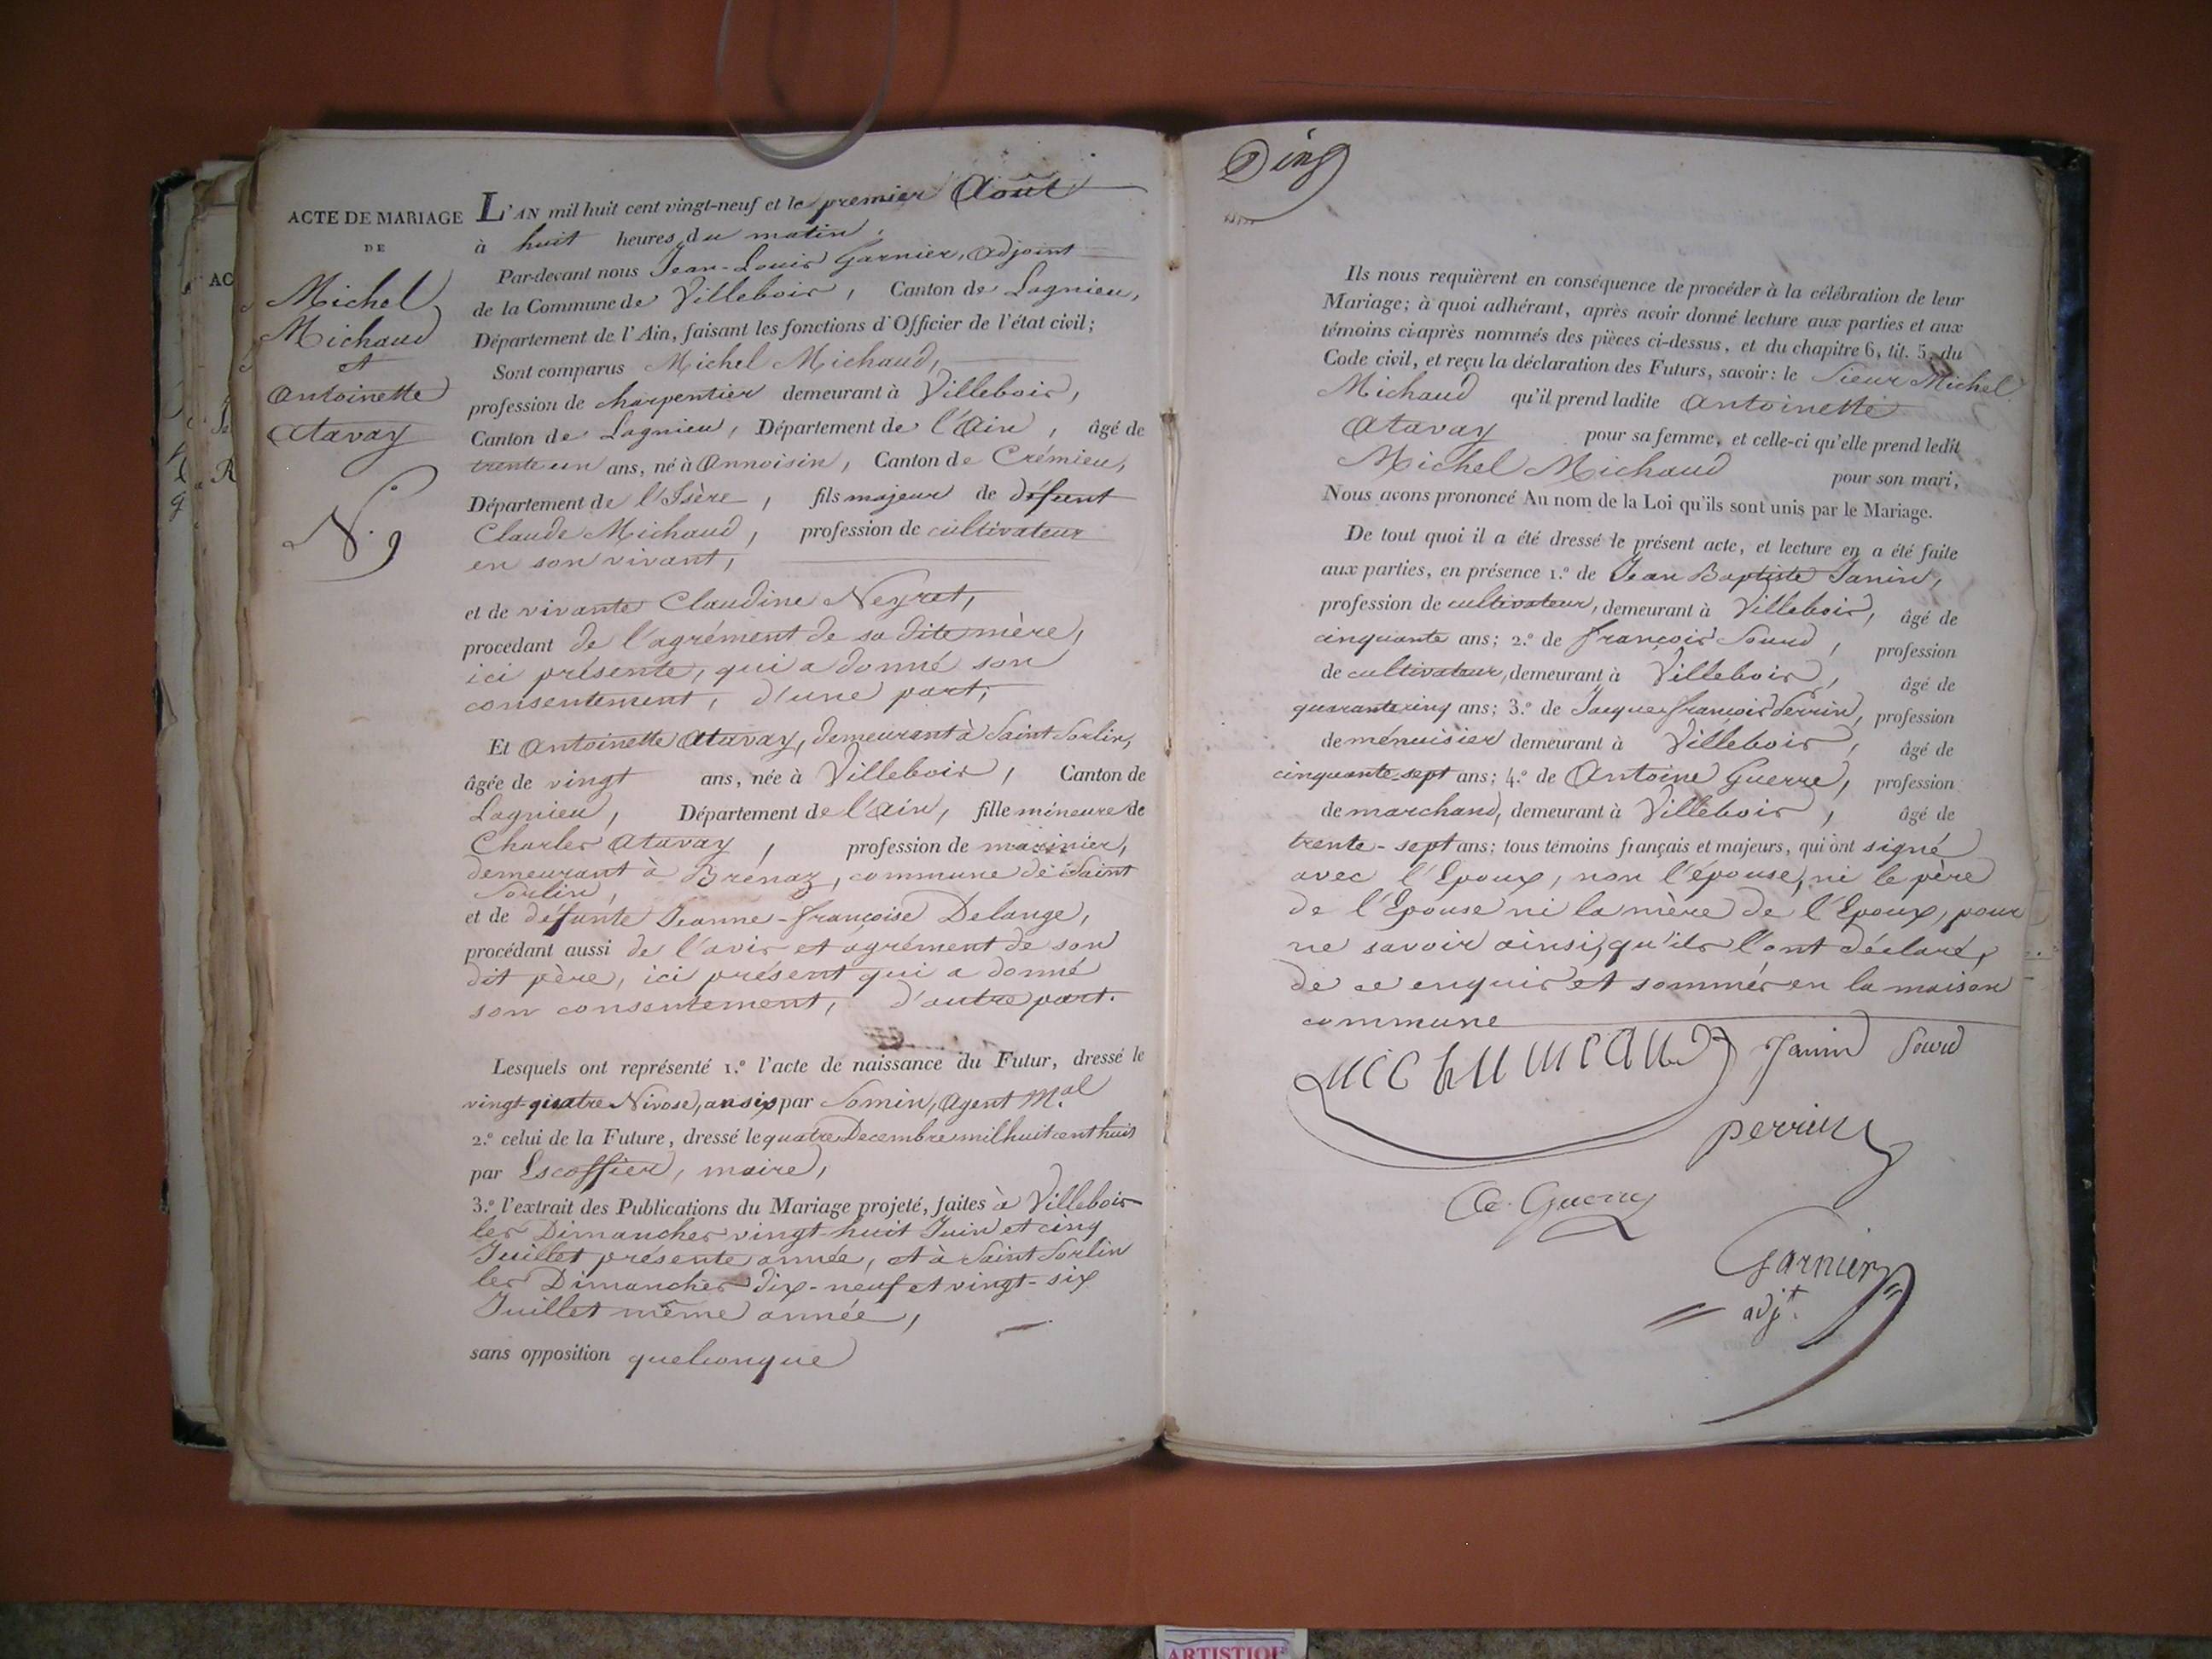 ACTE DE MARIAGE
DE
Michel
Michaud
et
Antoinette
Atavay
N.° 9
L'AN mil huit cent vingt-neuf et le premier Août
à huit heures du matin,
Par-devant nous Jean-Louis Garnier, adjoint
de la Commune de Villebois, Canton de Lagnieu,
Département de l'Ain, faisant les fonctions d'Officier de l'état civil;
Sont comparus Michel Michaud,
profession de charpentier demeurant à Villebois,
Canton de Lagnieu, Département de l'Ain, âgé de
trente un ans, né à Annoisin, Canton de Crémieu,
Département de l'Isère, fils majeur de défunt
Claude Michaud, profession de cultivateur
en son vivant,
et de vivante Claudine Neyret,
procedant de l'agrément de sa dite mère,
ici présente, qui a donné son
consentement, d'une part,
Et Antoinette Atavay, demeurant à Saint Sorlin,
âgée de vingt ans, née à Villebois, Canton de
Lagnieu, Département de l'Ain, fille mineure de
Charles Atavay, profession de marinier,
demeurant à Brénaz, commune de Saint
Sorlin,
et de défunte Jeanne-françoise Delange,
procédant aussi de l'avis et agrément de son
dit père, ici présent qui a donné
son consentement, d'autre part.
Lesquels ont représenté 1.° l'acte de naissance du Futur, dressé le
vingt-quatre Nivose, an six par Somin, Agent M.al
2.° celui de la Future, dressé le quatre Decembre mil huit cent huit
par Escoffier, maire,
3.° l'extrait des Publications du Mariage projeté, faites à Villebois
les Dimanches vingt-huit Juin et cinq
Juillet présente année, et à Saint Sorlin
les Dimanches dix-neuf et vingt-six
Juillet même année,
sans opposition quelconque
Ils nous requièrent en conséquence de procéder à la célébration de leur
Mariage; à quoi adhérant, après avoir donné lecture aux parties et aux
témoins ci-après nommés des pièces ci-dessus, et du chapitre 6, tit. 5, du
Code civil, et reçu la déclaration des Futurs, savoir: le Sieur Michel
Michaud qu'il prend ladite Antoinette
Atavay pour sa femme, et celle-ci qu'elle prend ledit
Michel Michaud pour son mari,
Nous avons prononcé Au nom de la Loi qu'ils sont unis par le Mariage.
De tout quoi il a été dressé le présent acte, et lecture en a été faite
aux parties, en présence 1.° de Jean Baptiste Janin,
profession de cultivateur, demeurant à Villebois, âgé de
cinquante ans; 2.° de françois Sourd, profession
de cultivateur, demeurant à Villebois, âgé de
quarante cinq ans; 3.° de Jacques françois Perrin, profession
de ménuisier demeurant à Villebois, âgé de
cinquante sept ans; 4.° de Antoine Guerre, profession
de marchand, demeurant à Villebois, âgé de
trente-sept ans; tous témoins français et majeurs, qui ont signé
avec l'Epoux, non l'épouse, ni le père
de l'Epouse ni la mère de l'Epoux, pour
ne savoir ainsi qu'ils l'ont déclaré,
de ce enquis et sommés en la maison
commune
Janin Sourd
perrin
A. Guerre
Garnier
adj.t
ARTISTIQUE